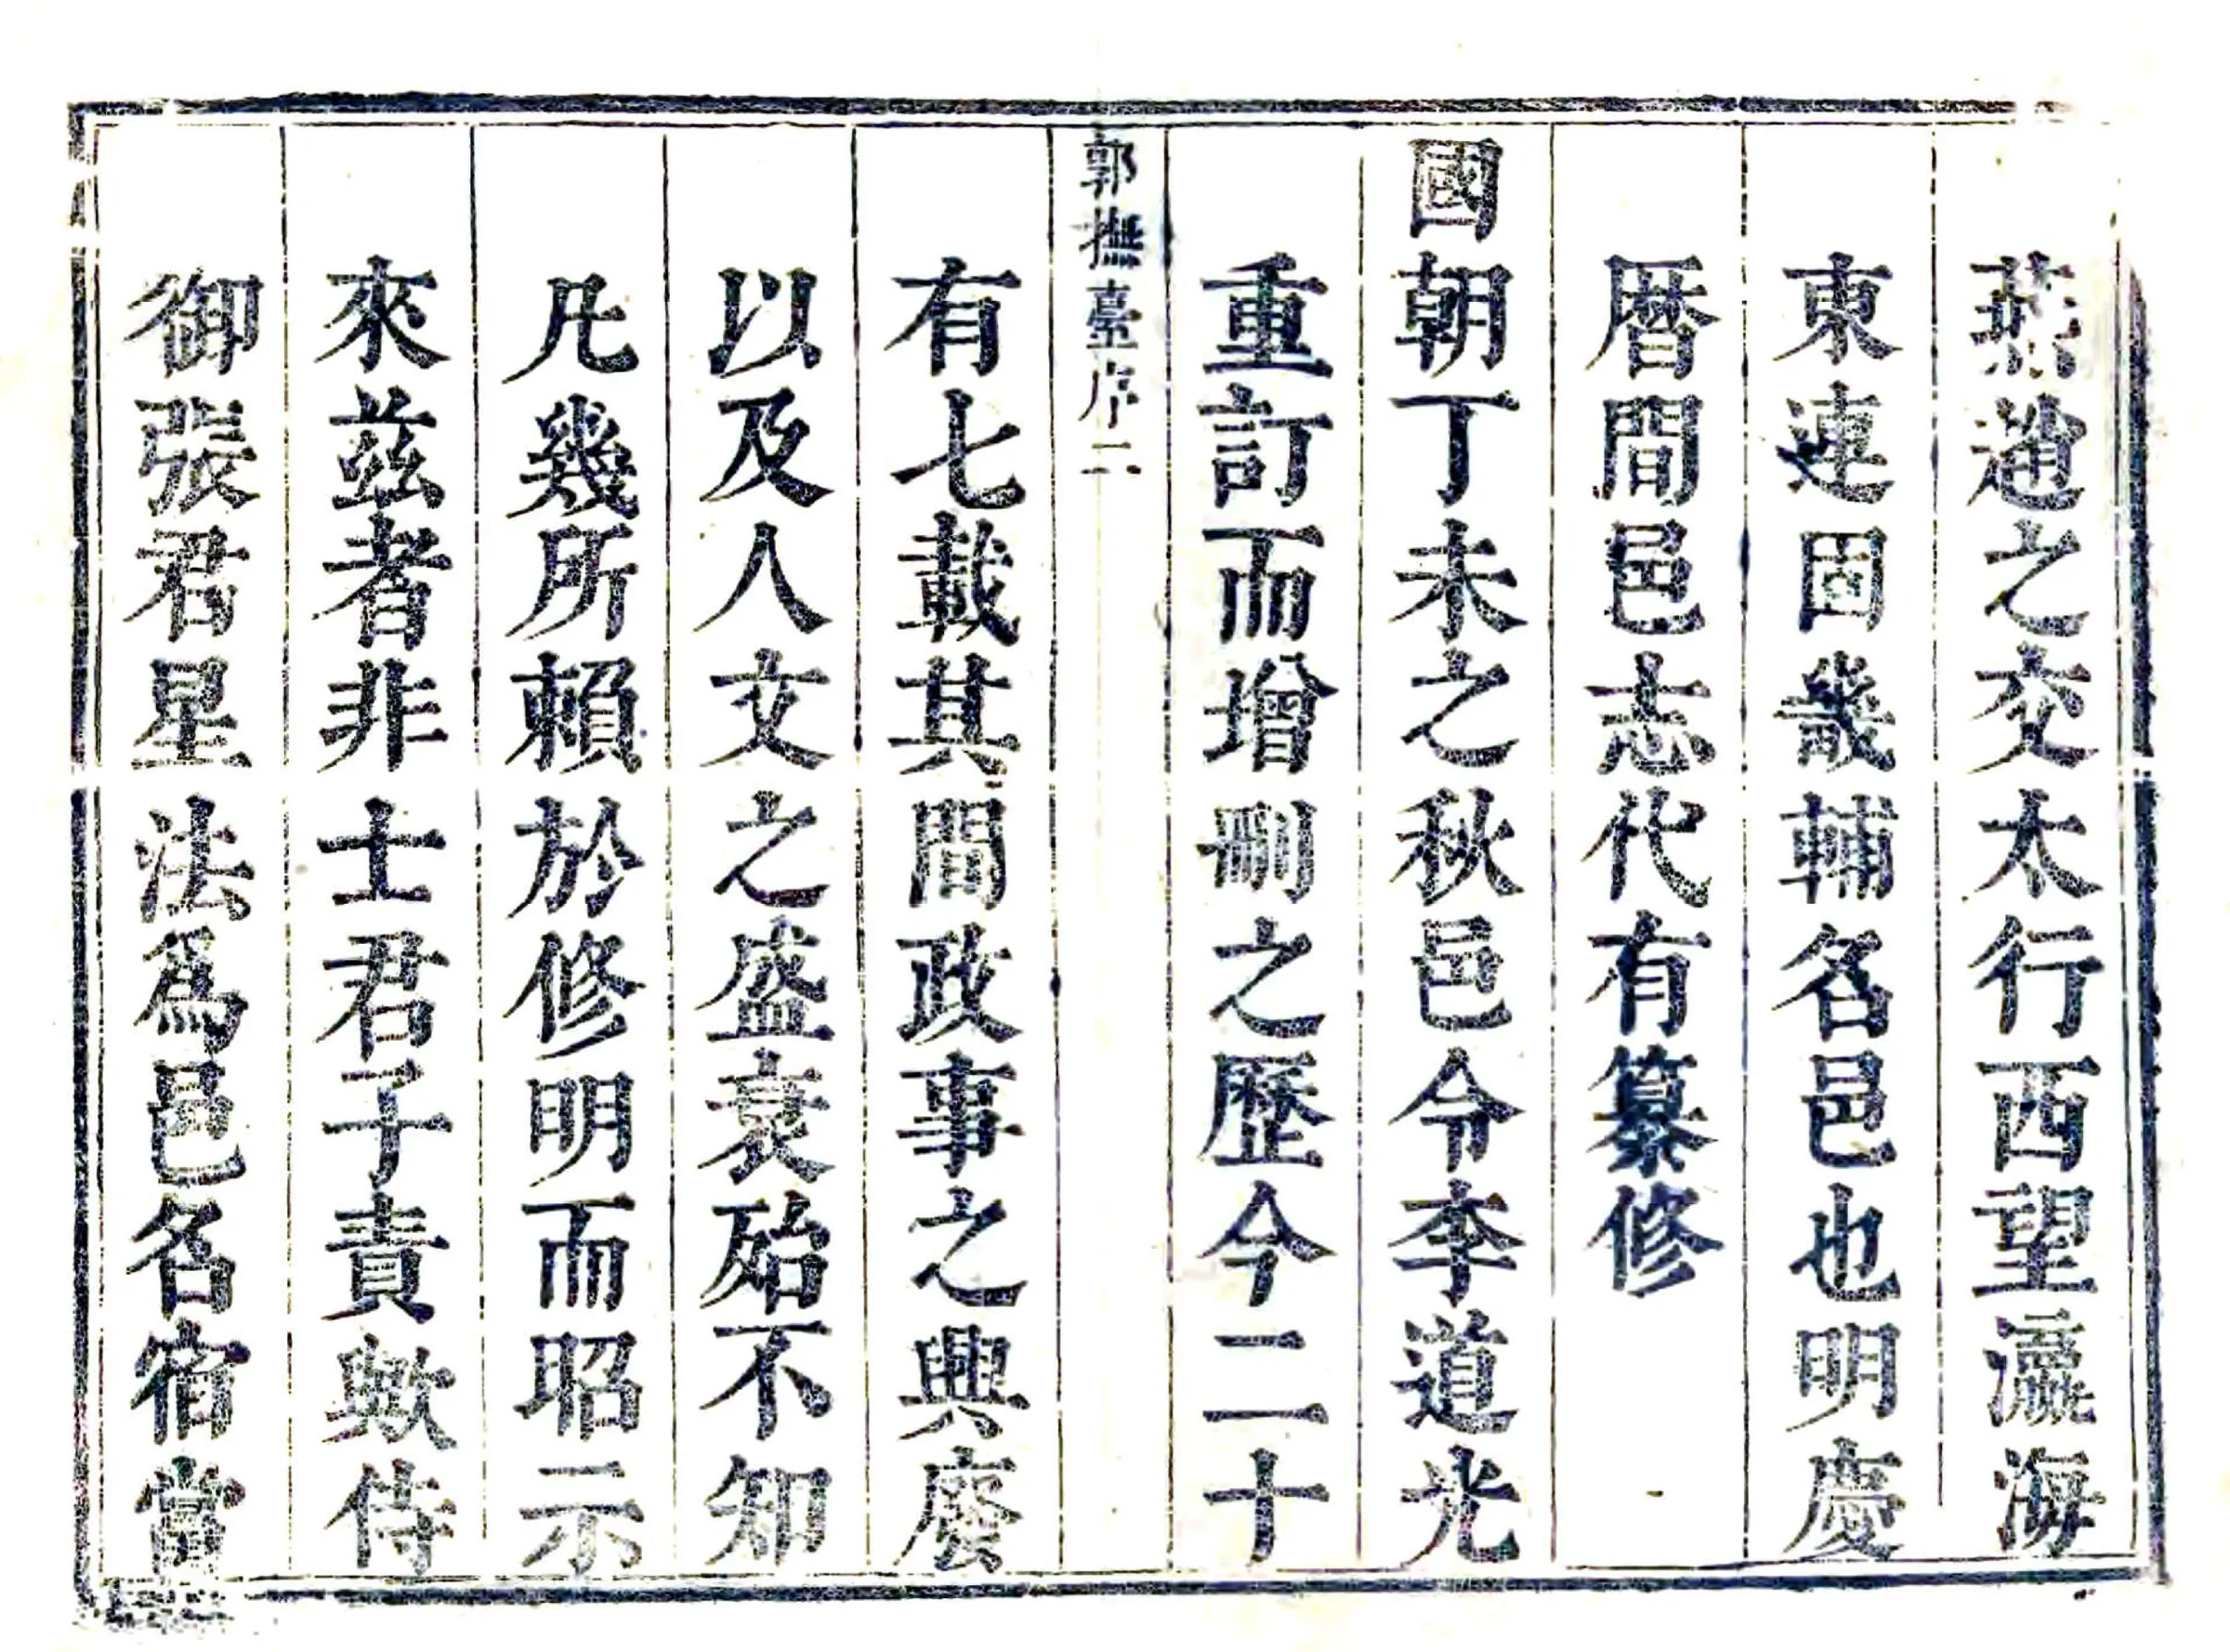 燕趙之交太行西望瀛海
東連固畿輔名邑也明慶
曆間邑志代有纂修
國朝丁未之秋邑令李道光
重訂而增刪之歷今二十
郭撫臺序二
有七載其間政事之興廢
以及人文之盛衰殆不知
凡幾所賴於修明而昭示
來茲者非士君子責歟侍
御張君星法爲邑名宿當